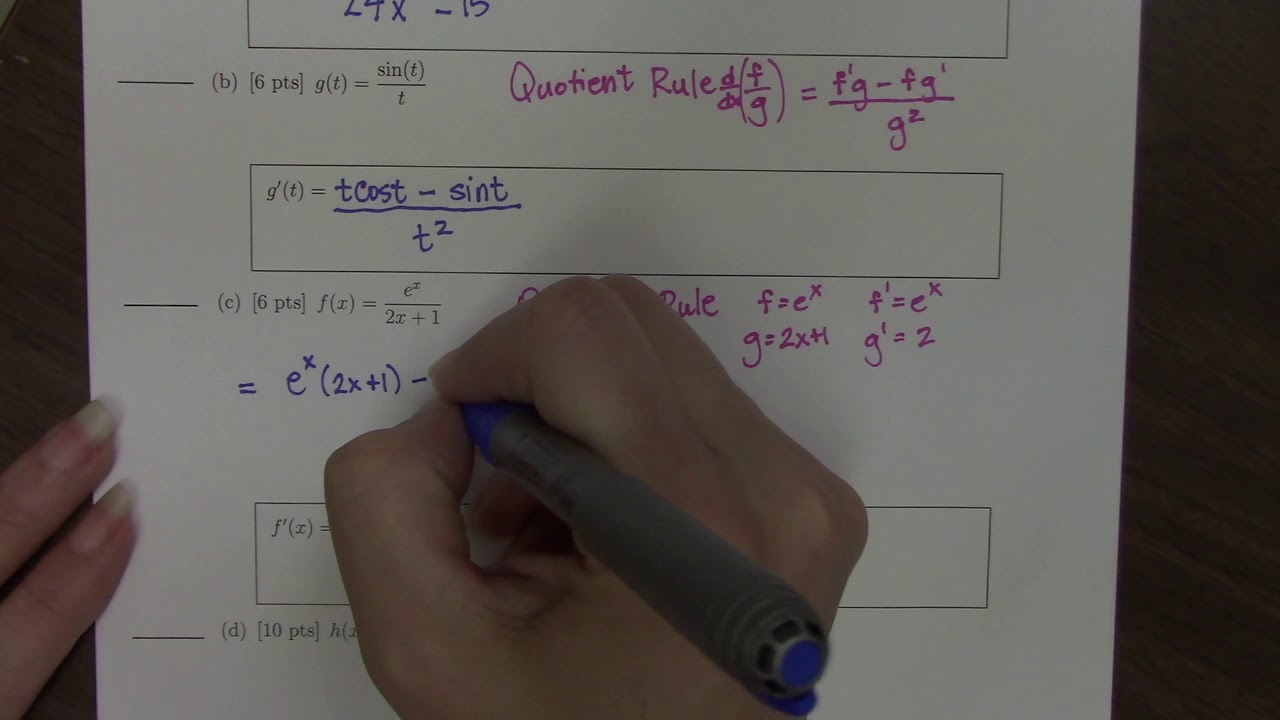 24x - 15
(b) [6 pts] g(t) = sin(t)/t Quotient Rule d/dx(f/g) = (f'g - fg')/g²
g'(t) = (tcost - sint)/t²
(c) [6 pts] f(x) = eˣ/(2x + 1) Rule f=eˣ f'=eˣ
g=2x+1 g'=2
= eˣ(2x+1) -
f'(x) =
(d) [10 pts]